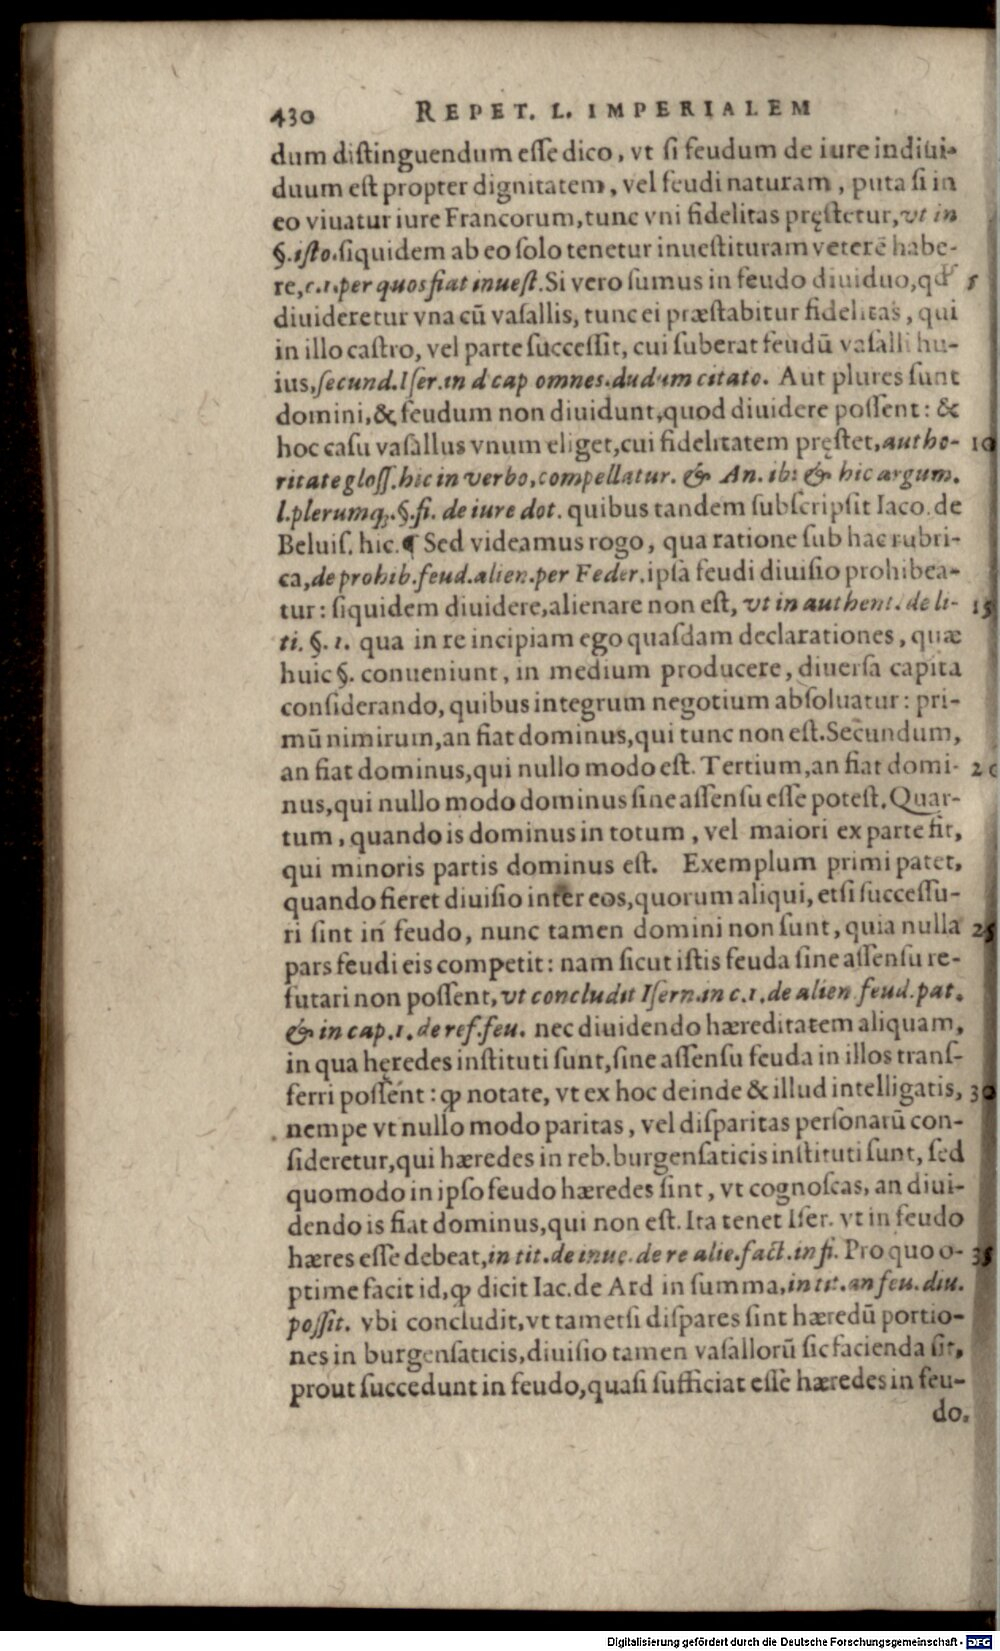 430 REPET. L. IMPERIALEM
dum distinguendum esse dico, vt si feudum de iure indiui-
duum est propter dignitatem, vel feudi naturam, puta si in
eo viuatur iure Francorum, tunc vni fidelitas pręstetur, vt in
§. isto. siquidem ab eo solo tenetur inuestituram veterē habe-
re, c.1. per quos fiat inuest. Si vero sumus in feudo diuiduo, qđ 5
diuideretur vna cū vasallis, tunc ei præstabitur fidelitas, qui
in illo castro, vel parte successit, cui suberat feudū vasalli hu-
ius, secund. Iser. in d cap omnes. dudum citato. Aut plures sunt
domini, & feudum non diuidunt, quod diuidere possent: &
hoc casu vasallus vnum eliget, cui fidelitatem pręstet, autho- 10
ritate gloss. hic in verbo, compellatur. & An. ibi & hic argum.
l. plerumq;. §. fi. de iure dot. quibus tandem subscripsit Iaco. de
Beluis. hic. ¶ Sed videamus rogo, qua ratione sub hac rubri-
ca, de prohib. feud. alien. per Feder. ipsa feudi diuisio prohibea-
tur: siquidem diuidere, alienare non est, vt in authent. de li- 15
ti. §. 1. qua in re incipiam ego quasdam declarationes, quæ
huic §. conueniunt, in medium producere, diuersa capita
considerando, quibus integrum negotium absoluatur: pri-
mū nimirum, an fiat dominus, qui tunc non est. Secundum,
an fiat dominus, qui nullo modo est. Tertium, an fiat domi- 20
nus, qui nullo modo dominus sine assensu esse potest. Quar-
tum, quando is dominus in totum, vel maiori ex parte fit,
qui minoris partis dominus est. Exemplum primi patet,
quando fieret diuisio inter eos, quorum aliqui, etsi successu-
ri sint in feudo, nunc tamen domini non sunt, quia nulla 25
pars feudi eis competit: nam sicut istis feuda sine assensu re-
futari non possent, vt concludit Isern. in c.1. de alien feud. pat.
& in cap. 1. de ref. feu. nec diuidendo hæreditatem aliquam,
in qua hęredes instituti sunt, sine assensu feuda in illos trans-
ferri possent: ꝙ notate, vt ex hoc deinde & illud intelligatis, 30
nempe vt nullo modo paritas, vel disparitas personarū con-
sideretur, qui hæredes in reb. burgensaticis instituti sunt, sed
quomodo in ipso feudo hæredes sint, vt cognoscas, an diui-
dendo is fiat dominus, qui non est. Ita tenet Iser. vt in feudo
hæres esse debeat, in tit. de inue. de re alie. fact. in fi. Pro quo o- 35
ptime facit id, ꝙ dicit Iac. de Ard in summa, in tit. an feu. diu.
possit. vbi concludit, vt tametsi dispares sint hæredū portio-
nes in burgensaticis, diuisio tamen vasallorū sic facienda sit,
prout succedunt in feudo, quasi sufficiat esse hæredes in feu-
do.
Digitalisierung gefördert durch die Deutsche Forschungsgemeinschaft - DFG